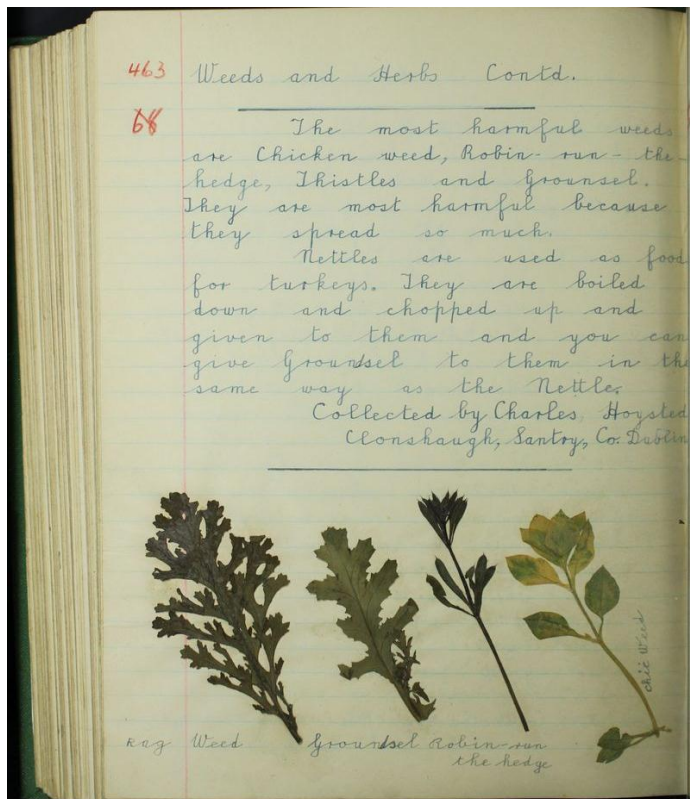 463 Weeds and Herbs Contd.
68
The most harmful weeds
are Chicken weed, Robin-run-the-
hedge, Thistles and Grounsel.
They are most harmful because
they spread so much.
Nettles are used as food
for turkeys. They are boiled
down and chopped up and
given to them and you can
give Groundsel to them in the
same way as the Nettle.
Collected by Charles Hoysted
Clonshaugh, Santry, Co. Dublin
chic Weed
Rag Weed Groundsel Robin-run
the hedge